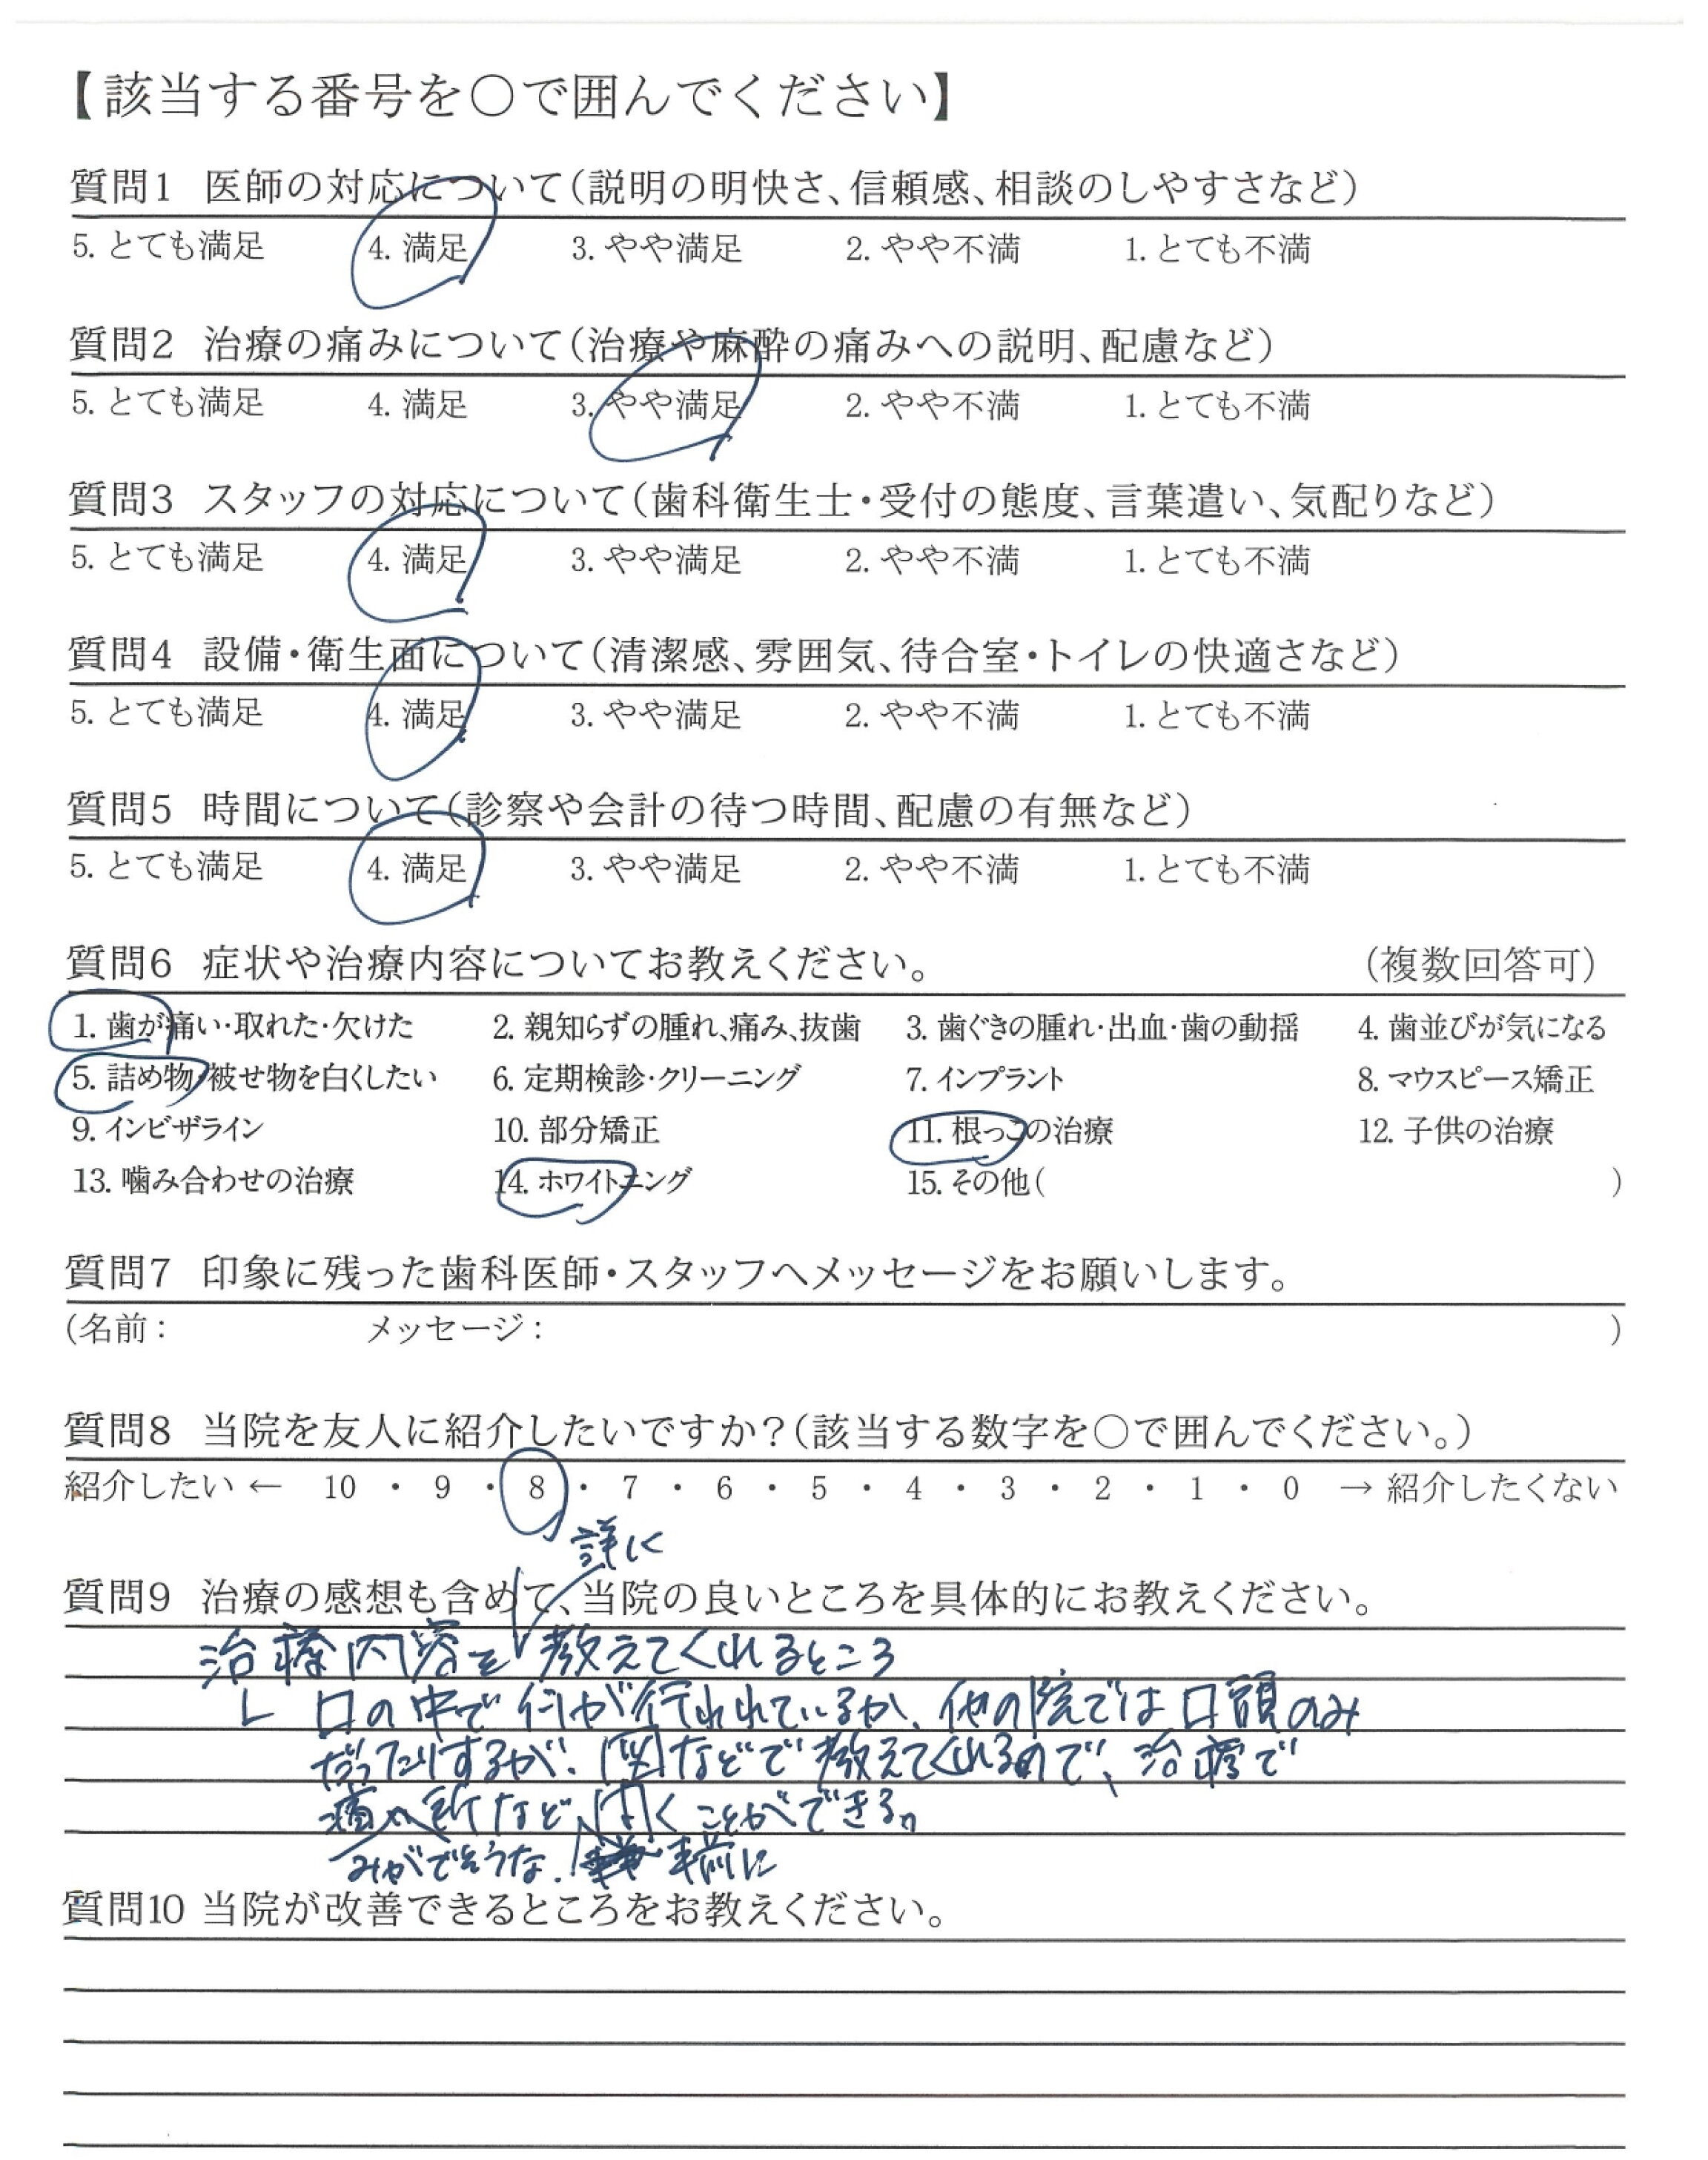 【該当する番号を〇で囲んでください】
質問1 医師の対応について(説明の明快さ、信頼感、相談のしやすさなど)
5. とても満足 4. 満足 3. やや満足 2. やや不満 1. とても不満
質問2 治療の痛みについて(治療や麻酔の痛みへの説明、配慮など)
5. とても満足 4. 満足 3. やや満足 2. やや不満 1. とても不満
質問3 スタッフの対応について(歯科衛生士・受付の態度、言葉遣い、気配りなど)
5. とても満足 4. 満足 3. やや満足 2. やや不満 1. とても不満
質問4 設備・衛生面について(清潔感、雰囲気、待合室・トイレの快適さなど)
5. とても満足 4. 満足 3. やや満足 2. やや不満 1. とても不満
質問5 時間について(診察や会計の待つ時間、配慮の有無など)
5. とても満足 4. 満足 3. やや満足 2. やや不満 1. とても不満
質問6 症状や治療内容についてお教えください。 (複数回答可)
1. 歯が痛い・取れた・欠けた 2. 親知らずの腫れ、痛み、抜歯 3. 歯ぐきの腫れ・出血・歯の動揺 4. 歯並びが気になる
5. 詰め物・被せ物を白くしたい 6. 定期検診・クリーニング 7. インプラント 8. マウスピース矯正
9. インビザライン 10. 部分矯正 11. 根っこの治療 12. 子供の治療
13. 噛み合わせの治療 14. ホワイトニング 15. その他( )
質問7 印象に残った歯科医師・スタッフへメッセージをお願いします。
(名前: メッセージ: )
質問8 当院を友人に紹介したいですか?(該当する数字を〇で囲んでください。)
紹介したい ← 10 ・ 9 ・ 8 ・ 7 ・ 6 ・ 5 ・ 4 ・ 3 ・ 2 ・ 1 ・ 0 → 紹介したくない
詳しく
質問9 治療の感想も含めて、当院の良いところを具体的にお教えください。
治療内容を教えてくれるところ
口の中で何が行われているか、他の院では口頭のみ
だったりするが、図などで教えてくれるので、治療で
痛 所など 聞くことができる。
みがでそうな 事前に
質問10 当院が改善できるところをお教えください。